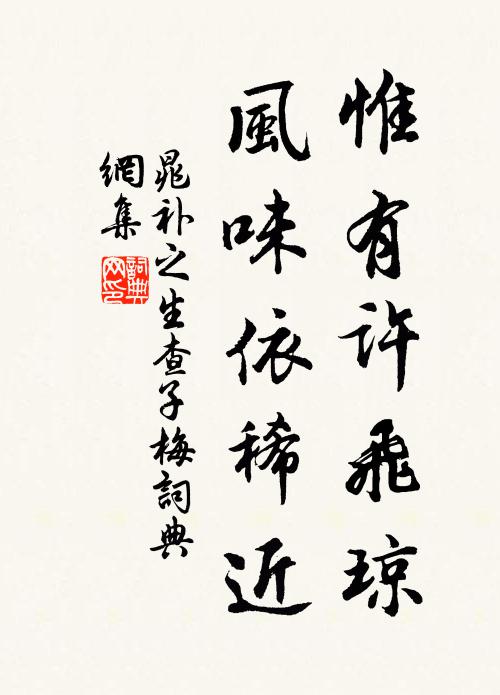 惟有許飛琼
風味依稀近
晁补之生查子梅詞典
網集
詞典網印